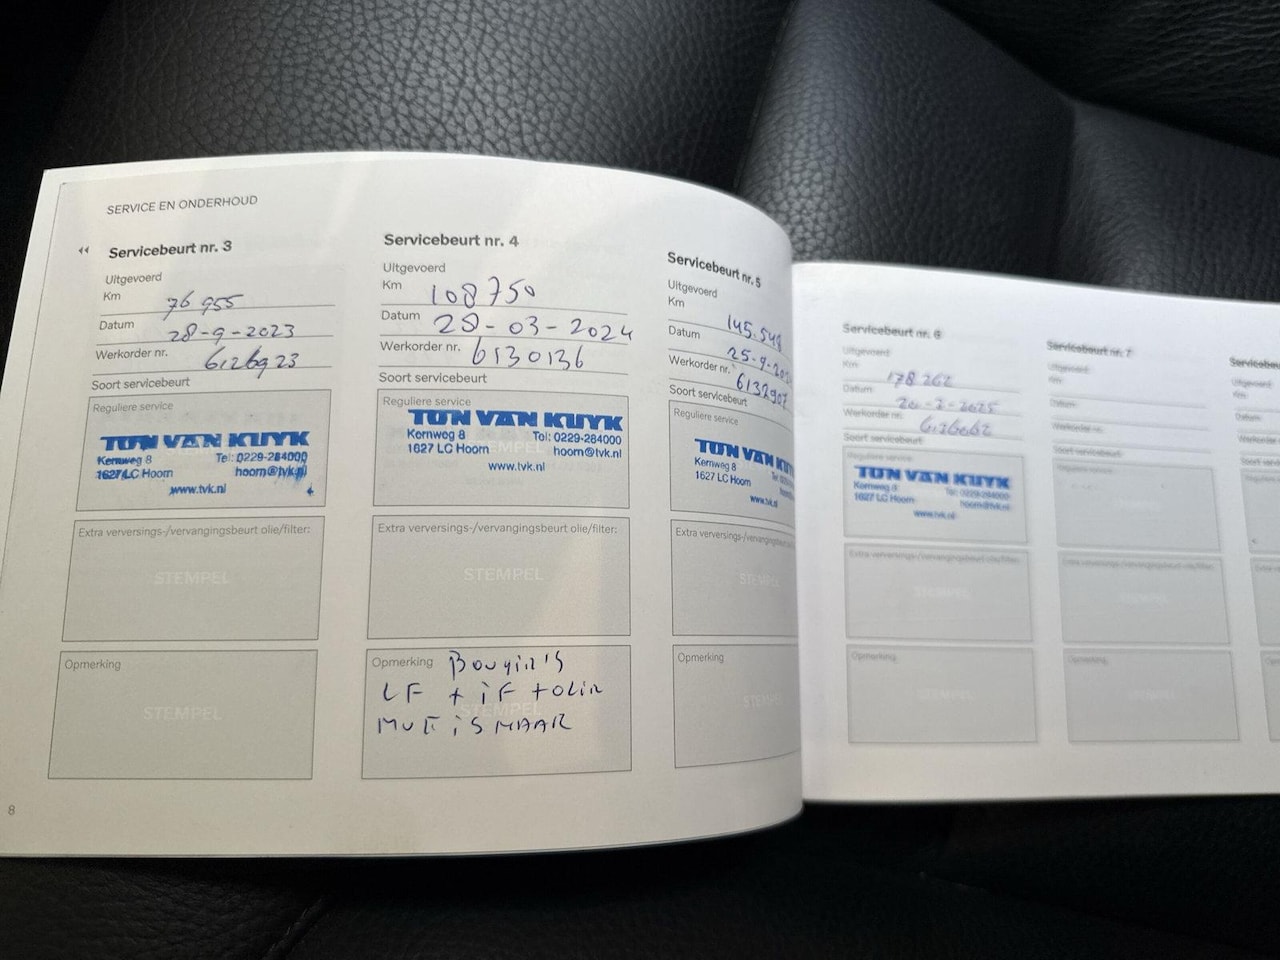 SERVICE EN ONDERHOUD
Servicebeurt nr. 3
Uitgevoerd
Km 76 955
Datum 28-9-2023
Werkorder nr. 6126923
Soort servicebeurt
Reguliere service
TON VAN KUYK
Kernweg 8 Tel: 0229-284000
1627 LC Hoorn hoorn@tvk.nl
www.tvk.nl
Extra verversings-/vervangingsbeurt olie/filter:
STEMPEL
Opmerking
STEMPEL
8
Servicebeurt nr. 4
Uitgevoerd
Km 108750
Datum 28-03-2024
Werkorder nr. 6130136
Soort servicebeurt
Reguliere service
TON VAN KUYK
Kernweg 8 Tel: 0229-284000
1627 LC Hoorn hoorn@tvk.nl
www.tvk.nl
Extra verversings-/vervangingsbeurt olie/filter:
STEMPEL
Opmerking
LF + iF +
STEMPEL
Servicebeurt nr. 5
Uitgevoerd
Km 145.548
Datum 25-9-20
Werkorder nr. 6132907
Soort servicebeurt
Reguliere service
TON VAN KUY
Kernweg 8
1627 LC Hoorn
www.tvk.nl
Extra verversings-/vervangingsbeurt
STEMPEL
Opmerking
STEMPEL
Servicebeurt nr. 6
Uitgevoerd
Km 178 262
Datum
Werkorder nr.
Soort servicebeurt
Reguliere service
TON VAN KUYK
Kernweg 8 Tel: 0229-284000
1627 LC Hoorn hoorn@tvk.nl
www.tvk.nl
Extra verversings-/vervangingsbeurt olie/filter:
STEMPEL
Opmerking
STEMPEL
Servicebeurt nr. 7
Uitgevoerd
Km
Datum
Werkorder nr.
Soort servicebeurt
Reguliere service
Extra verversings-/vervangingsbeurt olie/filter:
Opmerking
Servicebeurt
Uitgevoerd
Km
Datum